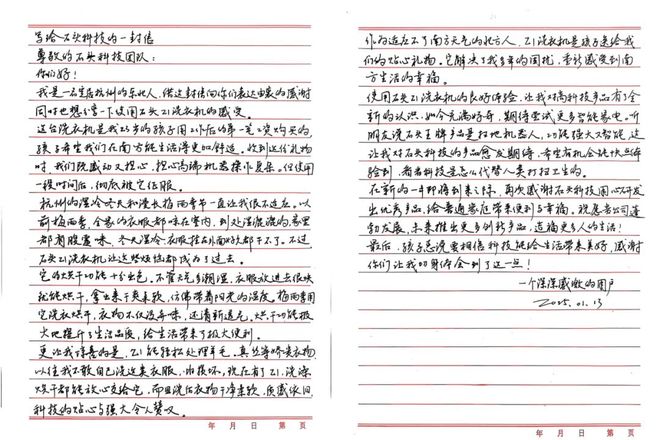 写给石头科技的一封信
尊敬的石头科技团队：
你们好！
我是一名生活在杭州的东北人，借这封信向你们表达由衷的感谢
同时也想分享一下使用石头Z1洗衣机的感受。
这台洗衣机是我25岁的孩子用工作后的第一笔工资购买的，
孩子希望我们在南方能生活得更加舒适。收到这份礼物
时，我们既感动又担心，担心高端机器操作复杂。但使用
一段时间后，彻底被它征服。
杭州的湿冷冬天和漫长梅雨季节一直让我很不适应。以
前梅雨季，全家的衣服都晾在室内，到处湿漉漉的，家里
都有股霉味，冬天湿冷，衣服挂在外面好久都干不了。不过
石头Z1洗衣机让这些烦恼都成为了过去
它的烘干功能十分出色。不管天气多潮湿，衣服放进去很快
就能烘干，拿出来干爽柔软，仿佛带着阳光的温度。梅雨季用
它洗衣烘干，衣物不仅没异味，还清新透气，烘干功能极
大地提升了生活品质，给生活带来了极大便利。
更让我惊喜的是，Z1能轻松处理羊毛、真丝等娇贵衣物
以往我不敢自己洗这类衣服，怕损坏。现在有了Z1，洗涤
烘干都能放心交给它，而且洗后衣物干净柔软，质感依旧
科技的贴心与强大令人赞叹。
年 月 日 第 页
作为适应不了南方天气的北方人，Z1洗衣机是孩子送给我
们的贴心礼物。它解决了我多年的困扰，重新感受到南
方生活的幸福。
使用石头Z1洗衣机的良好体验，让我对高科技产品有了全
新的认识，如今充满好奇，期待尝试更多智能家电。听
朋友说石头王牌产品是扫地机器人，功能强大又智能，这
让我对石头科技的产品愈发期待，希望有机会能快点体
验到，看看科技是怎么代替人类打扫卫生的。
在新的一年即将到来之际，再次感谢石头科技用心研发
出优秀产品，给普通家庭带来便利与幸福。祝愿贵公司蓬
勃发展，未来推出更多创新产品，造福更多人的生活！
最后，孩子总说要相信科技能给生活带来美好，感谢
你们让我切身体会到了这一点！
一个深深感激的用户
2025.01.13
年 月 日 第 页